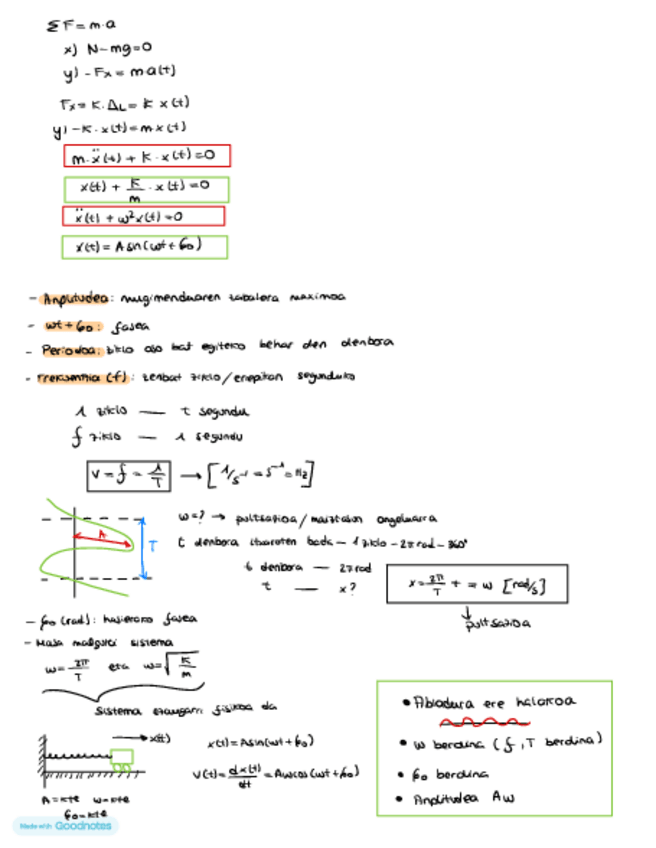 ΣF = m·a
x) N - mg = 0
y) - Fx = m a(t)
Fx = K·ΔL = K x(t)
y) -K·x(t) = m·x(t)
m·ẍ(t) + K·x(t) = 0
x(t) + K/m · x(t) = 0
ẍ(t) + ω²x(t) = 0
x(t) = A sin(ωt + φ0)
- Anplitudea: mugimenduaren tabalera maximoa
- ωt + φ0: fasea
- Periodoa: ziklo oso bat egiteko behar den denbora
- Frekuentzia (f): zenbat ziklo/errepikan segunduko
1 ziklo — t segundu
f ziklo — 1 segundu
V = f = 1/T → [1/s⁻¹ = s⁻¹ = Hz]
A
T
ω=? → pultsazioa/maiztasun angeluarra
t denbora itxaroten bada - 1 ziklo - 2π rad - 360º
t denbora — 2π rad
t — x?
x = 2π/T t = ω [rad/s]
↓
pultsazioa
- φ0 (rad): hasierako fasea
- Masa malguki sistema
ω = 2π/T eta ω = √K/m
Sistema ezaugarri fisikoa da
x(t)
x(t) = A sin(ωt + φ0)
V(t) = dx(t)/dt = Aω cos(ωt + φ0)
A = kte ω = kte
φ0 = kte
• Abiadura ere halakoa
• ω berdina (f, T berdina)
• φ0 berdina
• Anplitudea Aω
Made with Goodnotes